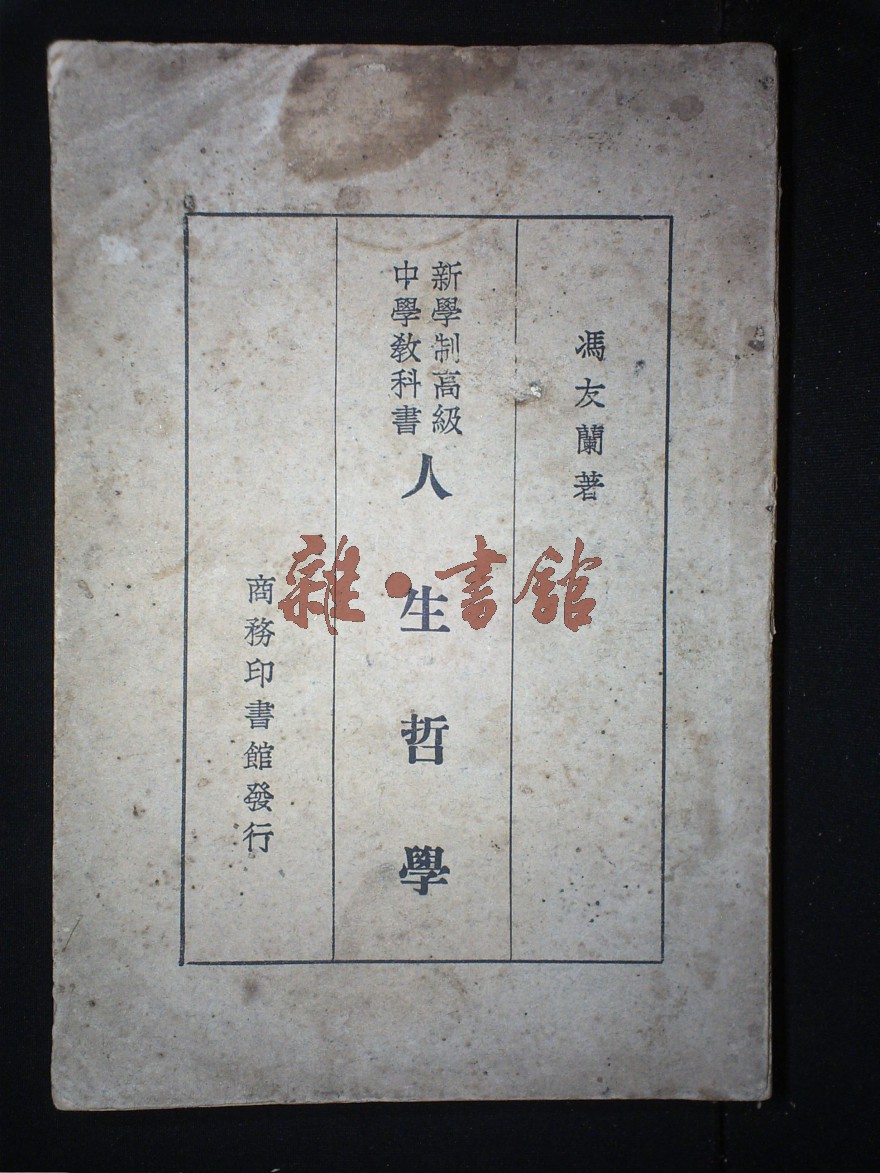 馮友蘭著
新學制高級
中學教科書
人生哲學
商務印書館發行
雜·書館